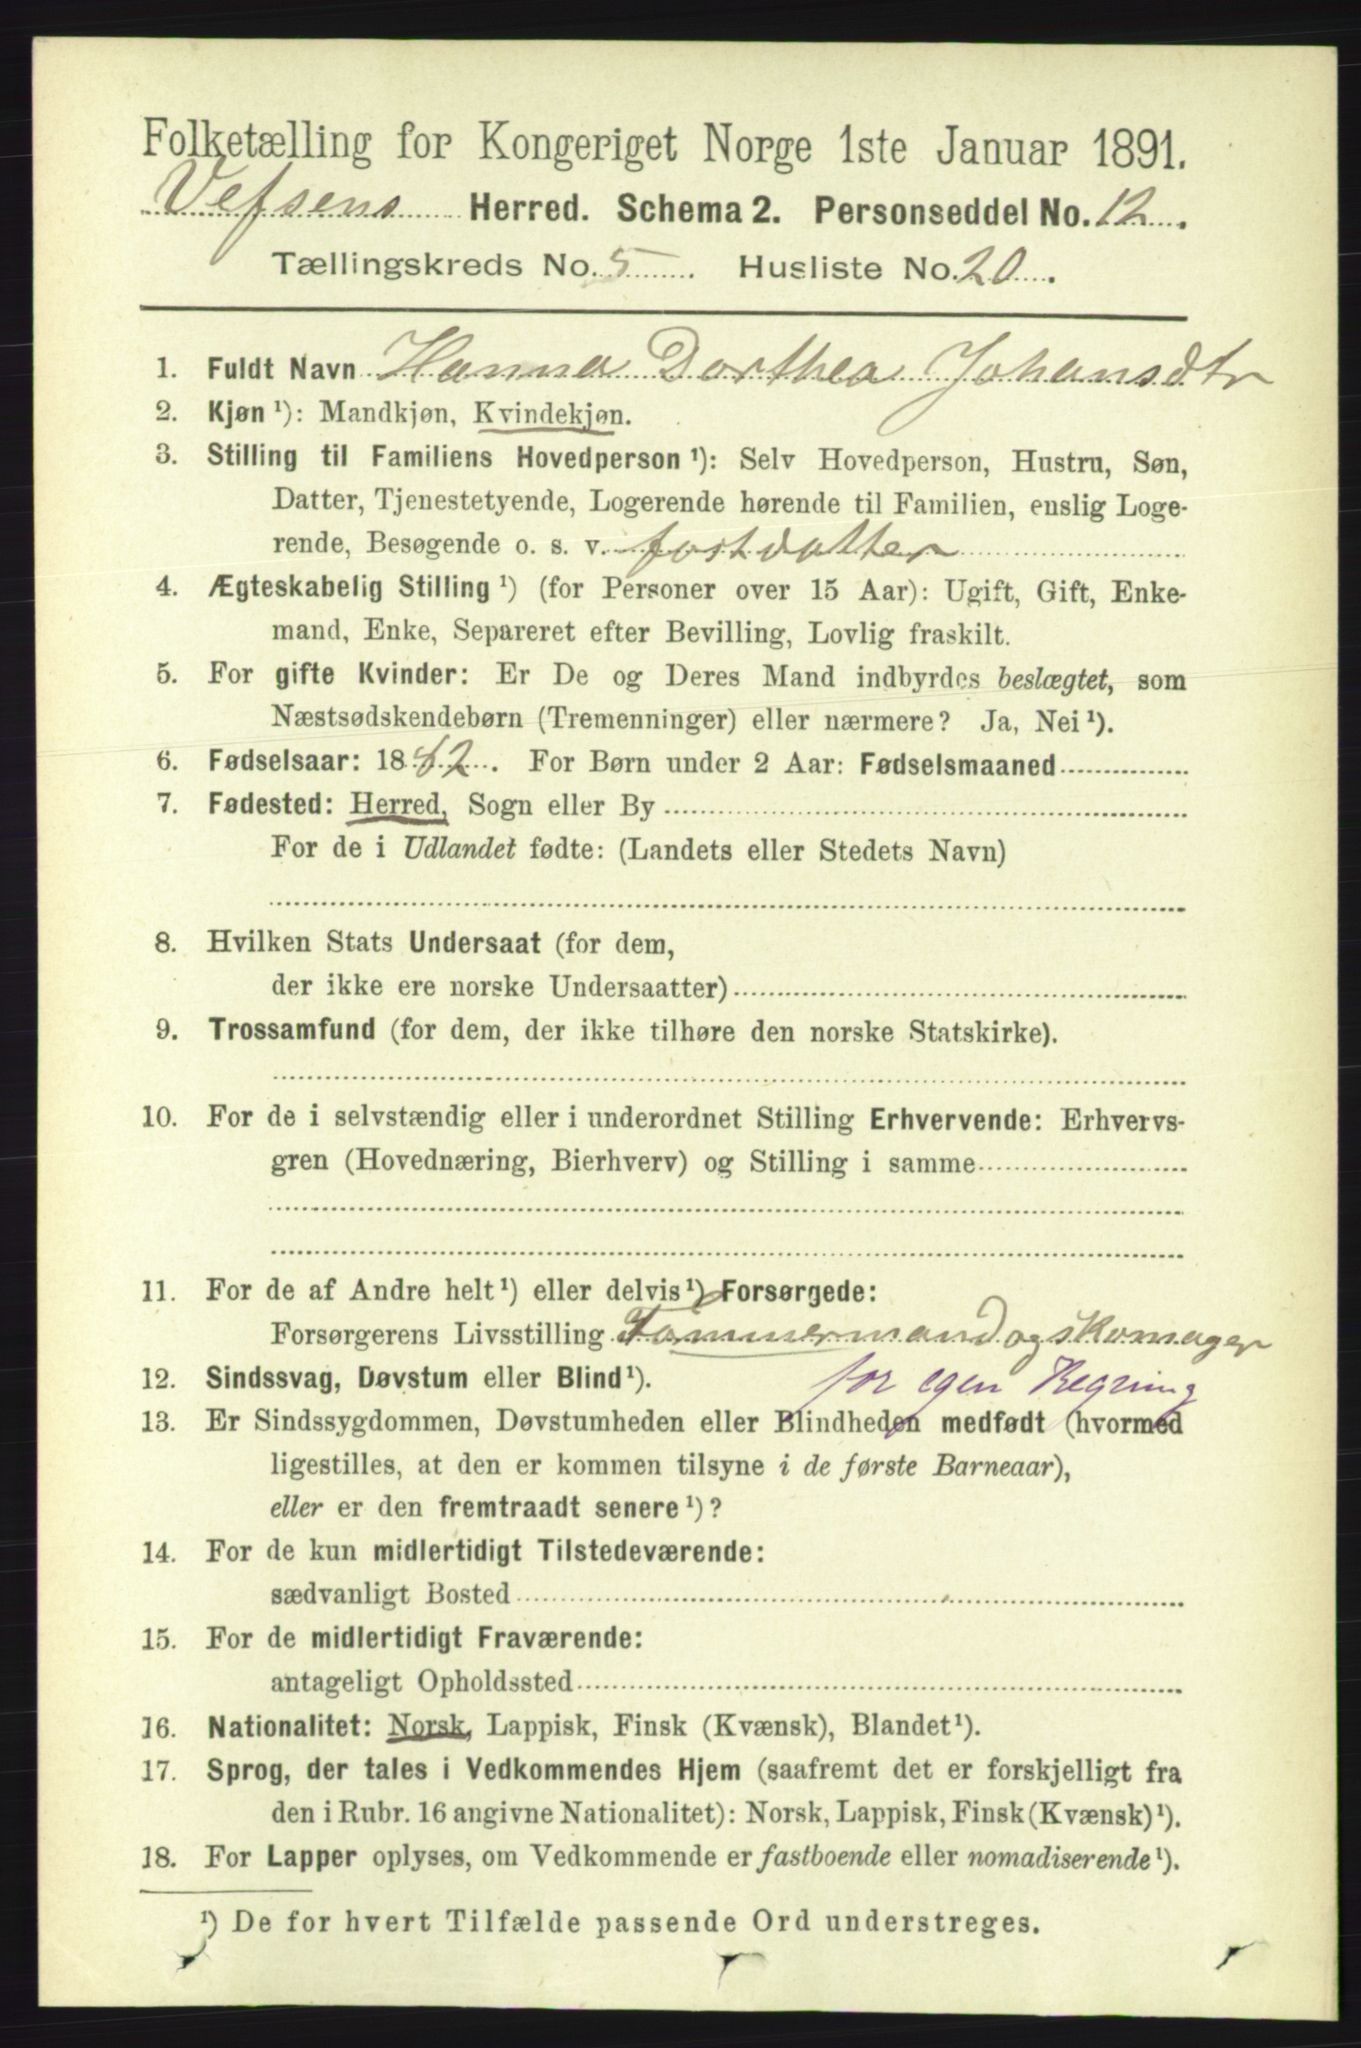 Folketælling for Kongeriget Norge 1ste Januar 1891.
Vefsens Herred. Schema 2. Personseddel No. 12.
Tællingskreds No. 5. Husliste No. 20.
1. Fuldt Navn Hanna Dorthea Johansdtr
2. Kjøn ¹): Mandkjøn, Kvindekjøn.
3. Stilling til Familiens Hovedperson ¹): Selv Hovedperson, Hustru, Søn,
Datter, Tjenestetyende, Logerende hørende til Familien, enslig Loge-
rende, Besøgende o. s. v. fostdatter
4. Ægteskabelig Stilling ¹) (for Personer over 15 Aar): Ugift, Gift, Enke-
mand, Enke, Separeret efter Bevilling, Lovlig fraskilt.
5. For gifte Kvinder: Er De og Deres Mand indbyrdes beslægtet, som
Næstsødskendebørn (Tremenninger) eller nærmere? Ja, Nei ¹).
6. Fødselsaar: 1882. For Børn under 2 Aar: Fødselsmaaned
7. Fødested: Herred, Sogn eller By
For de i Udlandet fødte: (Landets eller Stedets Navn)
8. Hvilken Stats Undersaat (for dem,
der ikke ere norske Undersaatter)
9. Trossamfund (for dem, der ikke tilhøre den norske Statskirke).
10. For de i selvstændig eller i underordnet Stilling Erhvervende: Erhvervs-
gren (Hovednæring, Bierhverv) og Stilling i samme
11. For de af Andre helt ¹) eller delvis ¹) Forsørgede:
Forsørgerens Livsstilling Tømmermand og skomager
for egen Regning
12. Sindssvag, Døvstum eller Blind ¹).
13. Er Sindssygdommen, Døvstumheden eller Blindheden medfødt (hvormed
ligestilles, at den er kommen tilsyne i de første Barneaar),
eller er den fremtraadt senere ¹)?
14. For de kun midlertidigt Tilstedeværende:
sædvanligt Bosted
15. For de midlertidigt Fraværende:
antageligt Opholdssted
16. Nationalitet: Norsk, Lappisk, Finsk (Kvænsk), Blandet ¹).
17. Sprog, der tales i Vedkommendes Hjem (saafremt det er forskjelligt fra
den i Rubr. 16 angivne Nationalitet): Norsk, Lappisk, Finsk (Kvænsk) ¹).
18. For Lapper oplyses, om Vedkommende er fastboende eller nomadiserende ¹).
¹) De for hvert Tilfælde passende Ord understreges.